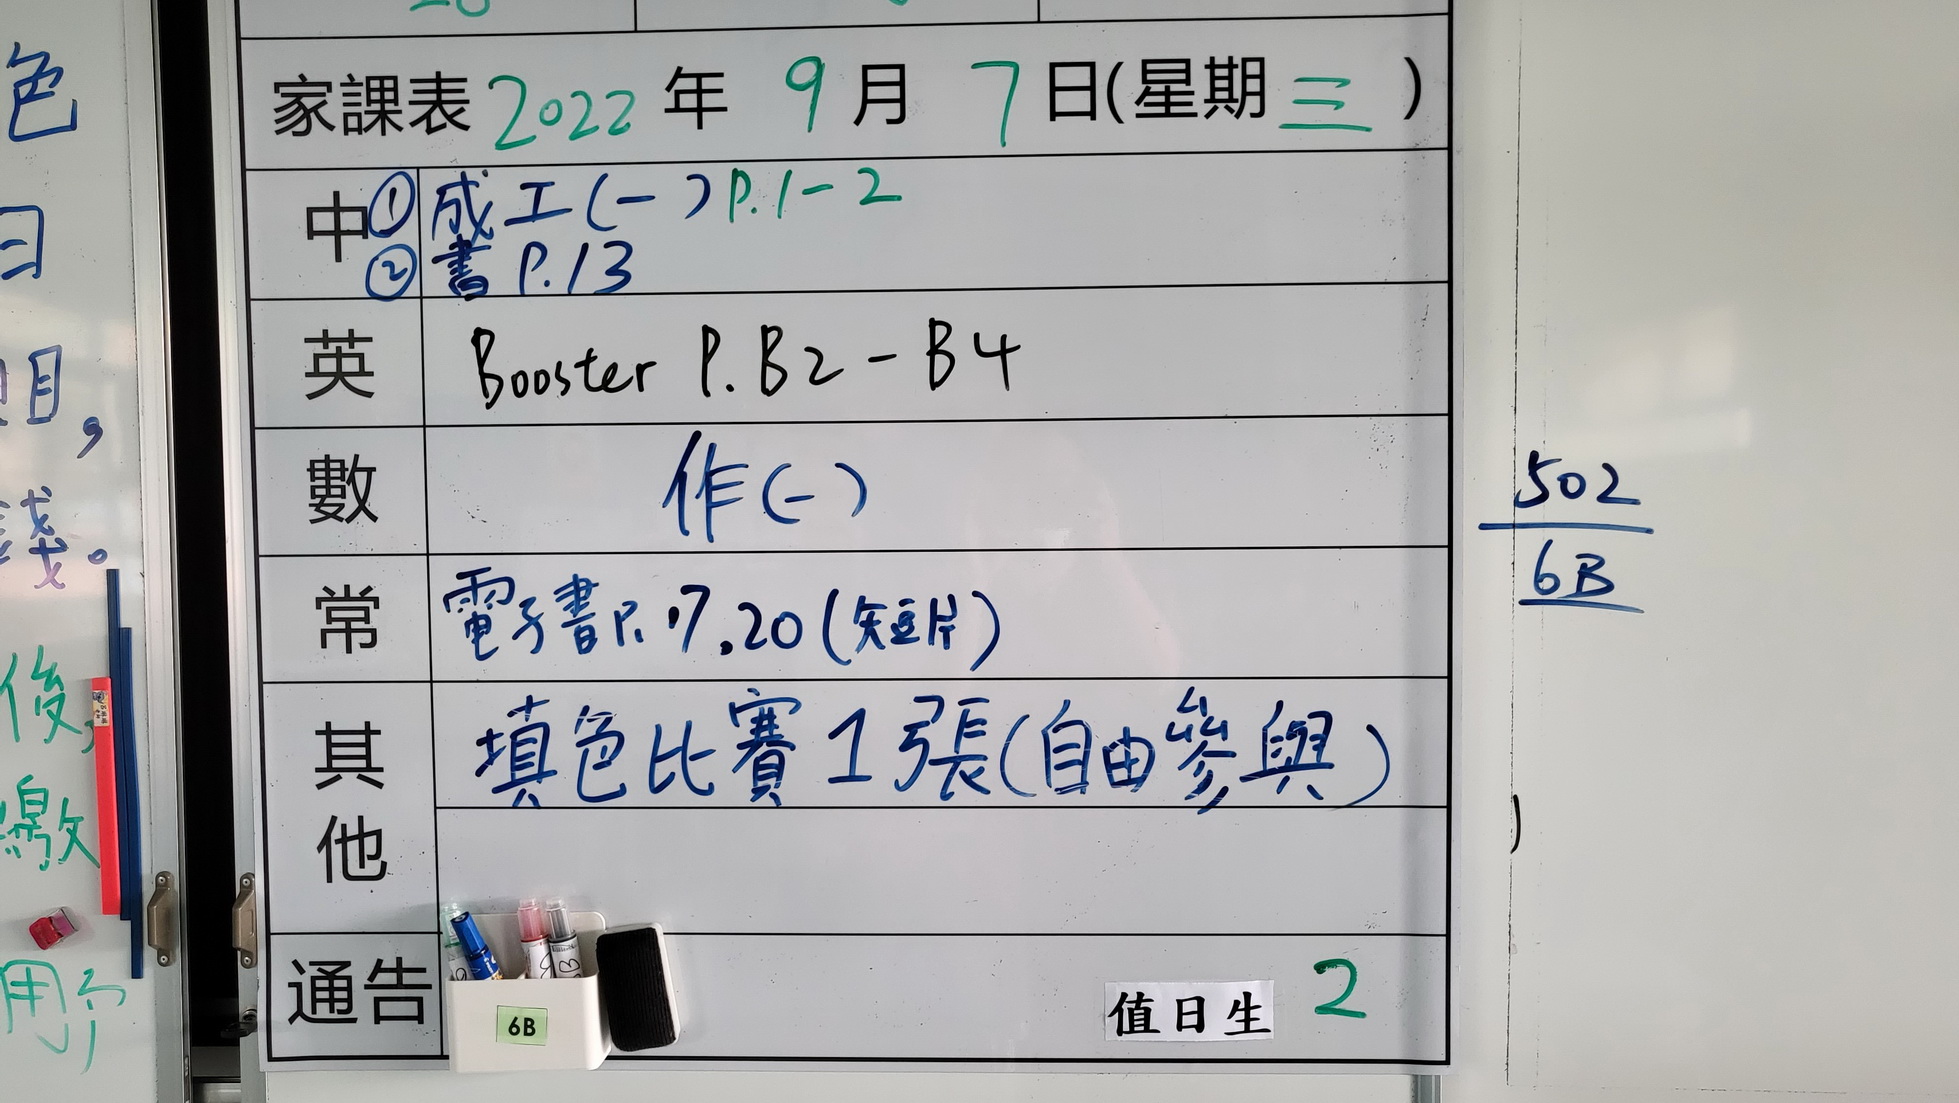 色
日
目,
錢。
後,
繳
用
家課表 2022 年 9 月 7 日(星期 三 )
中 ① 成工(一)P.1-2
② 書 P.13
英 Booster P.B2-B4
數 作(一)
常 電子書P.17,20(短片)
其他 填色比賽1張(自由參與)
通告
值日生 2
6B
502
6B